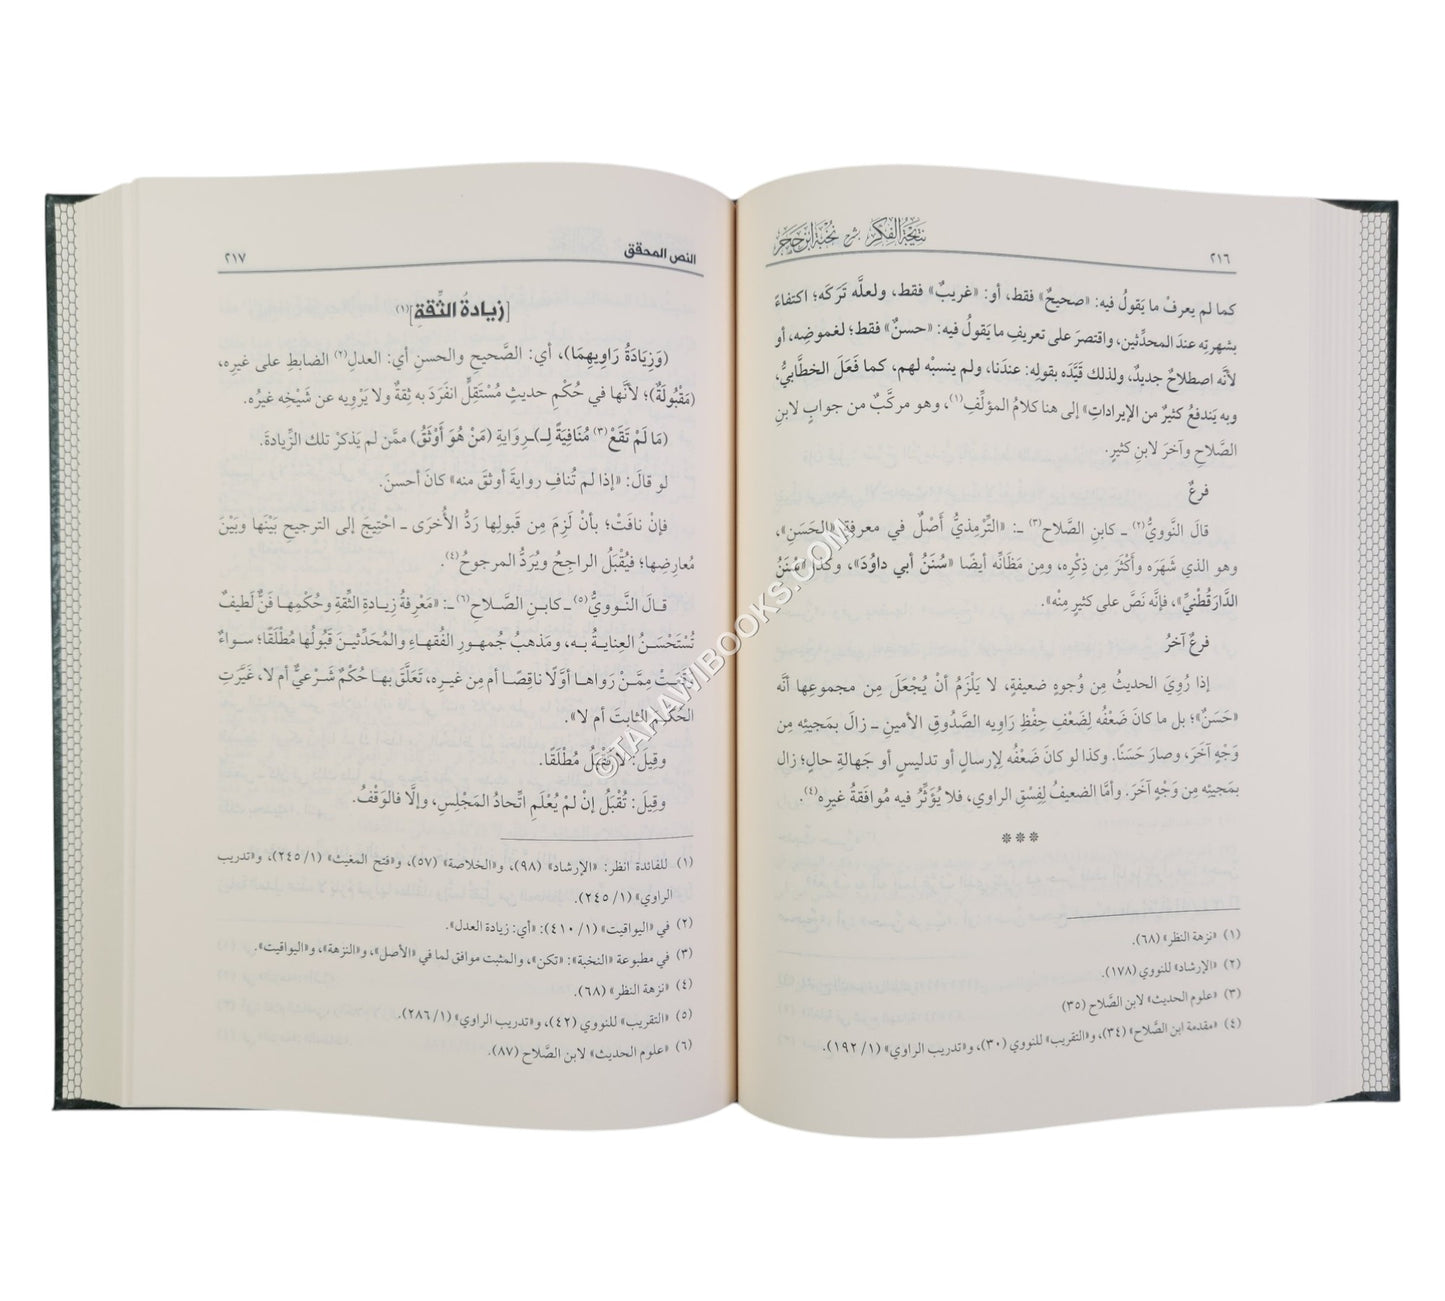 ٢١٦
نتيجة الفكر شرح نخبة ابن حجر
كما لم يعرفْ ما يَقولُ فيه: «صحيحٌ» فقط، أو: «غريبٌ» فقط، ولعلَّه تَرَكَه؛ اكتفاءً
بشهرتِه عندَ المحدِّثين، واقتصرَ على تعريفِ ما يَقولُ فيه: «حسنٌ» فقط؛ لغموضِه، أو
لأنَّه اصطلاحٌ جديدٌ، ولذلك قيَّدَه بقولِه: عندَنا، ولم ينسبْه لهم، كما فَعَلَ الخطَّابيُّ،
وبه يَندفعُ كثيرٌ من الإيراداتِ» إلى هنا كلامُ المؤلِّفِ(١)، وهو مركَّبٌ من جوابٍ لابنِ
الصَّلاحِ وآخرَ لابنِ كثيرٍ.
فرعٌ
قالَ النَّوويُّ(٢) ـ كابنِ الصَّلاح(٣) ـ: «التِّرمذيُّ أَصْلٌ في معرفةِ «الحَسَنِ»،
وهو الذي شَهَرَه وأَكْثَرَ مِن ذِكْرِه، ومِن مَظَانِّه أيضًا «سُنَنُ أبي داوُدَ»، وكذا «سُنَنُ
الدَّارَقُطْنيِّ»، فإنَّه نَصَّ على كثيرٍ مِنْه».
فرعٌ آخرُ
إذا رُوِيَ الحديثُ مِن وُجوهٍ ضعيفةٍ، لا يَلْزَمُ أنْ يُجْعَلَ مِن مجموعِها أنَّه
«حَسَنٌ»؛ بل ما كانَ ضَعْفُه لِضَعْفِ حِفْظِ رَاوِيه الصَّدُوقِ الأمينِ ـ زالَ بمَجيئِه مِن
وَجْهٍ آخَرَ، وصارَ حَسَنًا. وكذا لو كانَ ضَعْفُه لِإرسالٍ أو تدليسٍ أو جَهالةِ حالٍ؛ زال
بمَجيئِه مِن وَجْهٍ آخَرَ. وأمَّا الضعيفُ لِفِسْقِ الراوي، فلا يُؤَثِّرُ فيه مُوافَقةُ غيرِه(٤).
***
(١) «نزهة النظر» (٦٨).
(٢) «الإرشاد» للنووي (١٧٨).
(٣) «علوم الحديث» لابن الصَّلاح (٣٥)
(٤) «مقدمة ابن الصَّلاح» (٣٤)، و«التقريب» للنووي (٣٠)، و«تدريب الراوي» (١/ ١٩٢).
النص المحقق
٢١٧
[زيادةُ الثِّقةِ](١)
(وَزِيَادَةُ رَاوِيهِمَا)، أي: الصَّحيحِ والحسنِ أي: العدلِ(٢) الضابطِ على غيرِه،
(مَقْبُولَةٌ)؛ لأنَّها في حُكْمِ حديثٍ مُسْتَقِلٍّ انفَرَدَ به ثِقةٌ ولا يَرْوِيه عن شَيْخِه غيرُه.
(مَا لَمْ تَقَعْ(٣) مُنَافِيَةً لِـ)ـرِوَايةِ (مَنْ هُوَ أَوْثَقُ) ممَّن لم يَذكرْ تلك الزِّيادةَ.
لو قالَ: «إذا لم تُنافِ روايةَ أوثقَ منه» كانَ أحسنَ.
فإنْ نافَتْ؛ بأنْ لَزِمَ مِن قَبولِها رَدُّ الأُخرَى ـ احْتِيجَ إلى الترجيحِ بَيْنَها وبَيْنَ
مُعارِضِها؛ فيُقْبَلُ الراجِحُ ويُرَدُّ المرجوحُ(٤).
قـالَ النَّـوويُّ(٥) ـ كابـنِ الصَّـلاحِ(٦) ـ: «مَعْرِفةُ زِيـادةِ الثِّقةِ وحُكْمِهـا فَنٌّ لَطيفٌ
تُسْتَحْسَـنُ العِنايـةُ بـه، ومَذهـبُ جُمهـورِ الفُقهـاءِ والمُحَدِّثيـنَ قَبُولُها مُطْلَقًا؛ سـواءٌ
وَقَعَتْ مِمَّـنْ رَواهـا أوَّلًا ناقِصًـا أم مِن غيـرِه، تَعَلَّقَ بهـا حُكْمٌ شَـرْعيٌّ أم لا، غَيَّرَتِ
الحُكْمَ الثابتَ أم لا».
وقِيلَ: لا تُقْبَلُ مُطْلَقًا.
وقِيلَ: تُقْبَلُ إنْ لمْ يُعْلَمِ اتِّحادُ المَجْلِسِ، وإلَّا فالوَقْفُ.
(١) للفائدة انظر: «الإرشاد» (٩٨)، و«الخلاصة» (٥٧)، و«فتح المغيث» (١/ ٢٤٥)، و«تدريب
الراوي» (١/ ٢٤٥).
(٢) في «اليواقيت» (١/ ٤١٠): «أي: زيادة العدل».
(٣) في مطبوعة «النخبة»: «تكن»، والمثبت موافق لما في «الأصل»، و«النزهة»، و«اليواقيت».
(٤) «نزهة النظر» (٦٨).
(٥) «التقريب» للنووي (٤٢)، و«تدريب الراوي» (١/ ٢٨٦).
(٦) «علوم الحديث» لابن الصَّلاح (٨٧).
©TAHAWIBOOKS.COM